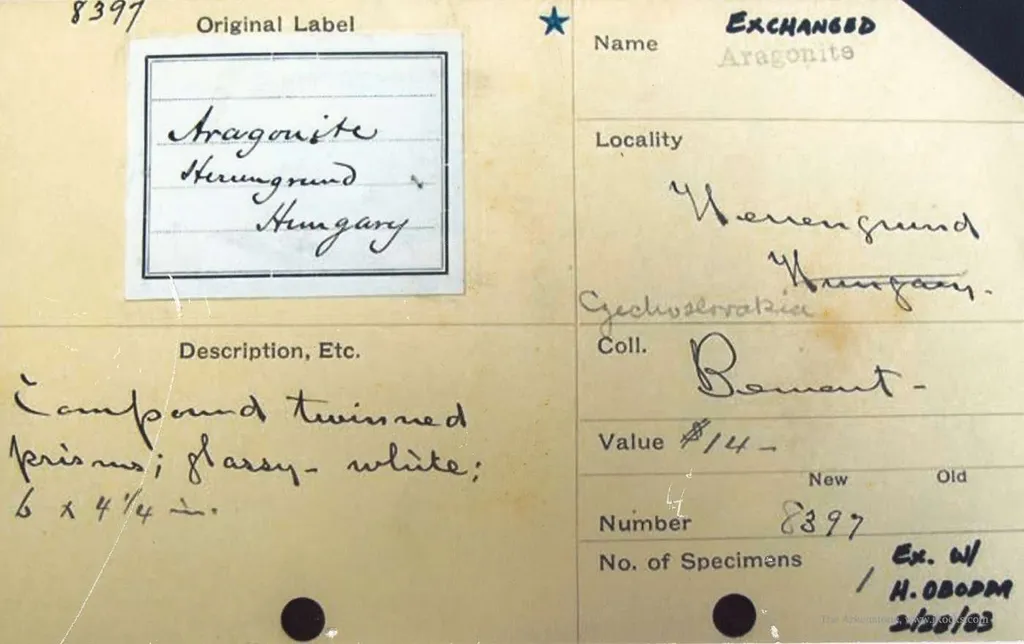 8397
Original Label
Aragonite
Herrengrund
Hungary
Description, Etc.
Compound twinned
prisms; glassy - white;
6 x 4 1/4 in.
EXCHANGED
Name
Aragonite
Locality
Herrengrund
Hungary.
Czechoslovakia
Coll.
Bement -
Value $14 -
New Old
Number 8397
No. of Specimens 1
Ex. W/
H. OBODDA